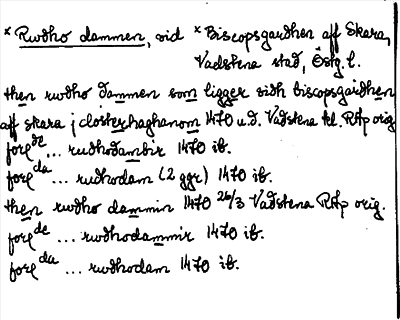 * Rwdho dammen, vid * Biscopsgardhen aff Skara,
Vadstena stad, Östg. l.
then rwdho dammen som ligger vidh biscopsgardhen
aff skara j closterhaghanom 1470 u.d. Vadstena kl. RAp orig
foreg de ... rudhodambir 1470 ib.
foreg da ... rudhodam (2 ggr) 1470 ib.
then rwdho dammin 1470 26/3 Vadstena RAp orig.
foreg de ... rwdhodammir 1470 ib.
foreg da ... rwdhodam 1470 ib.